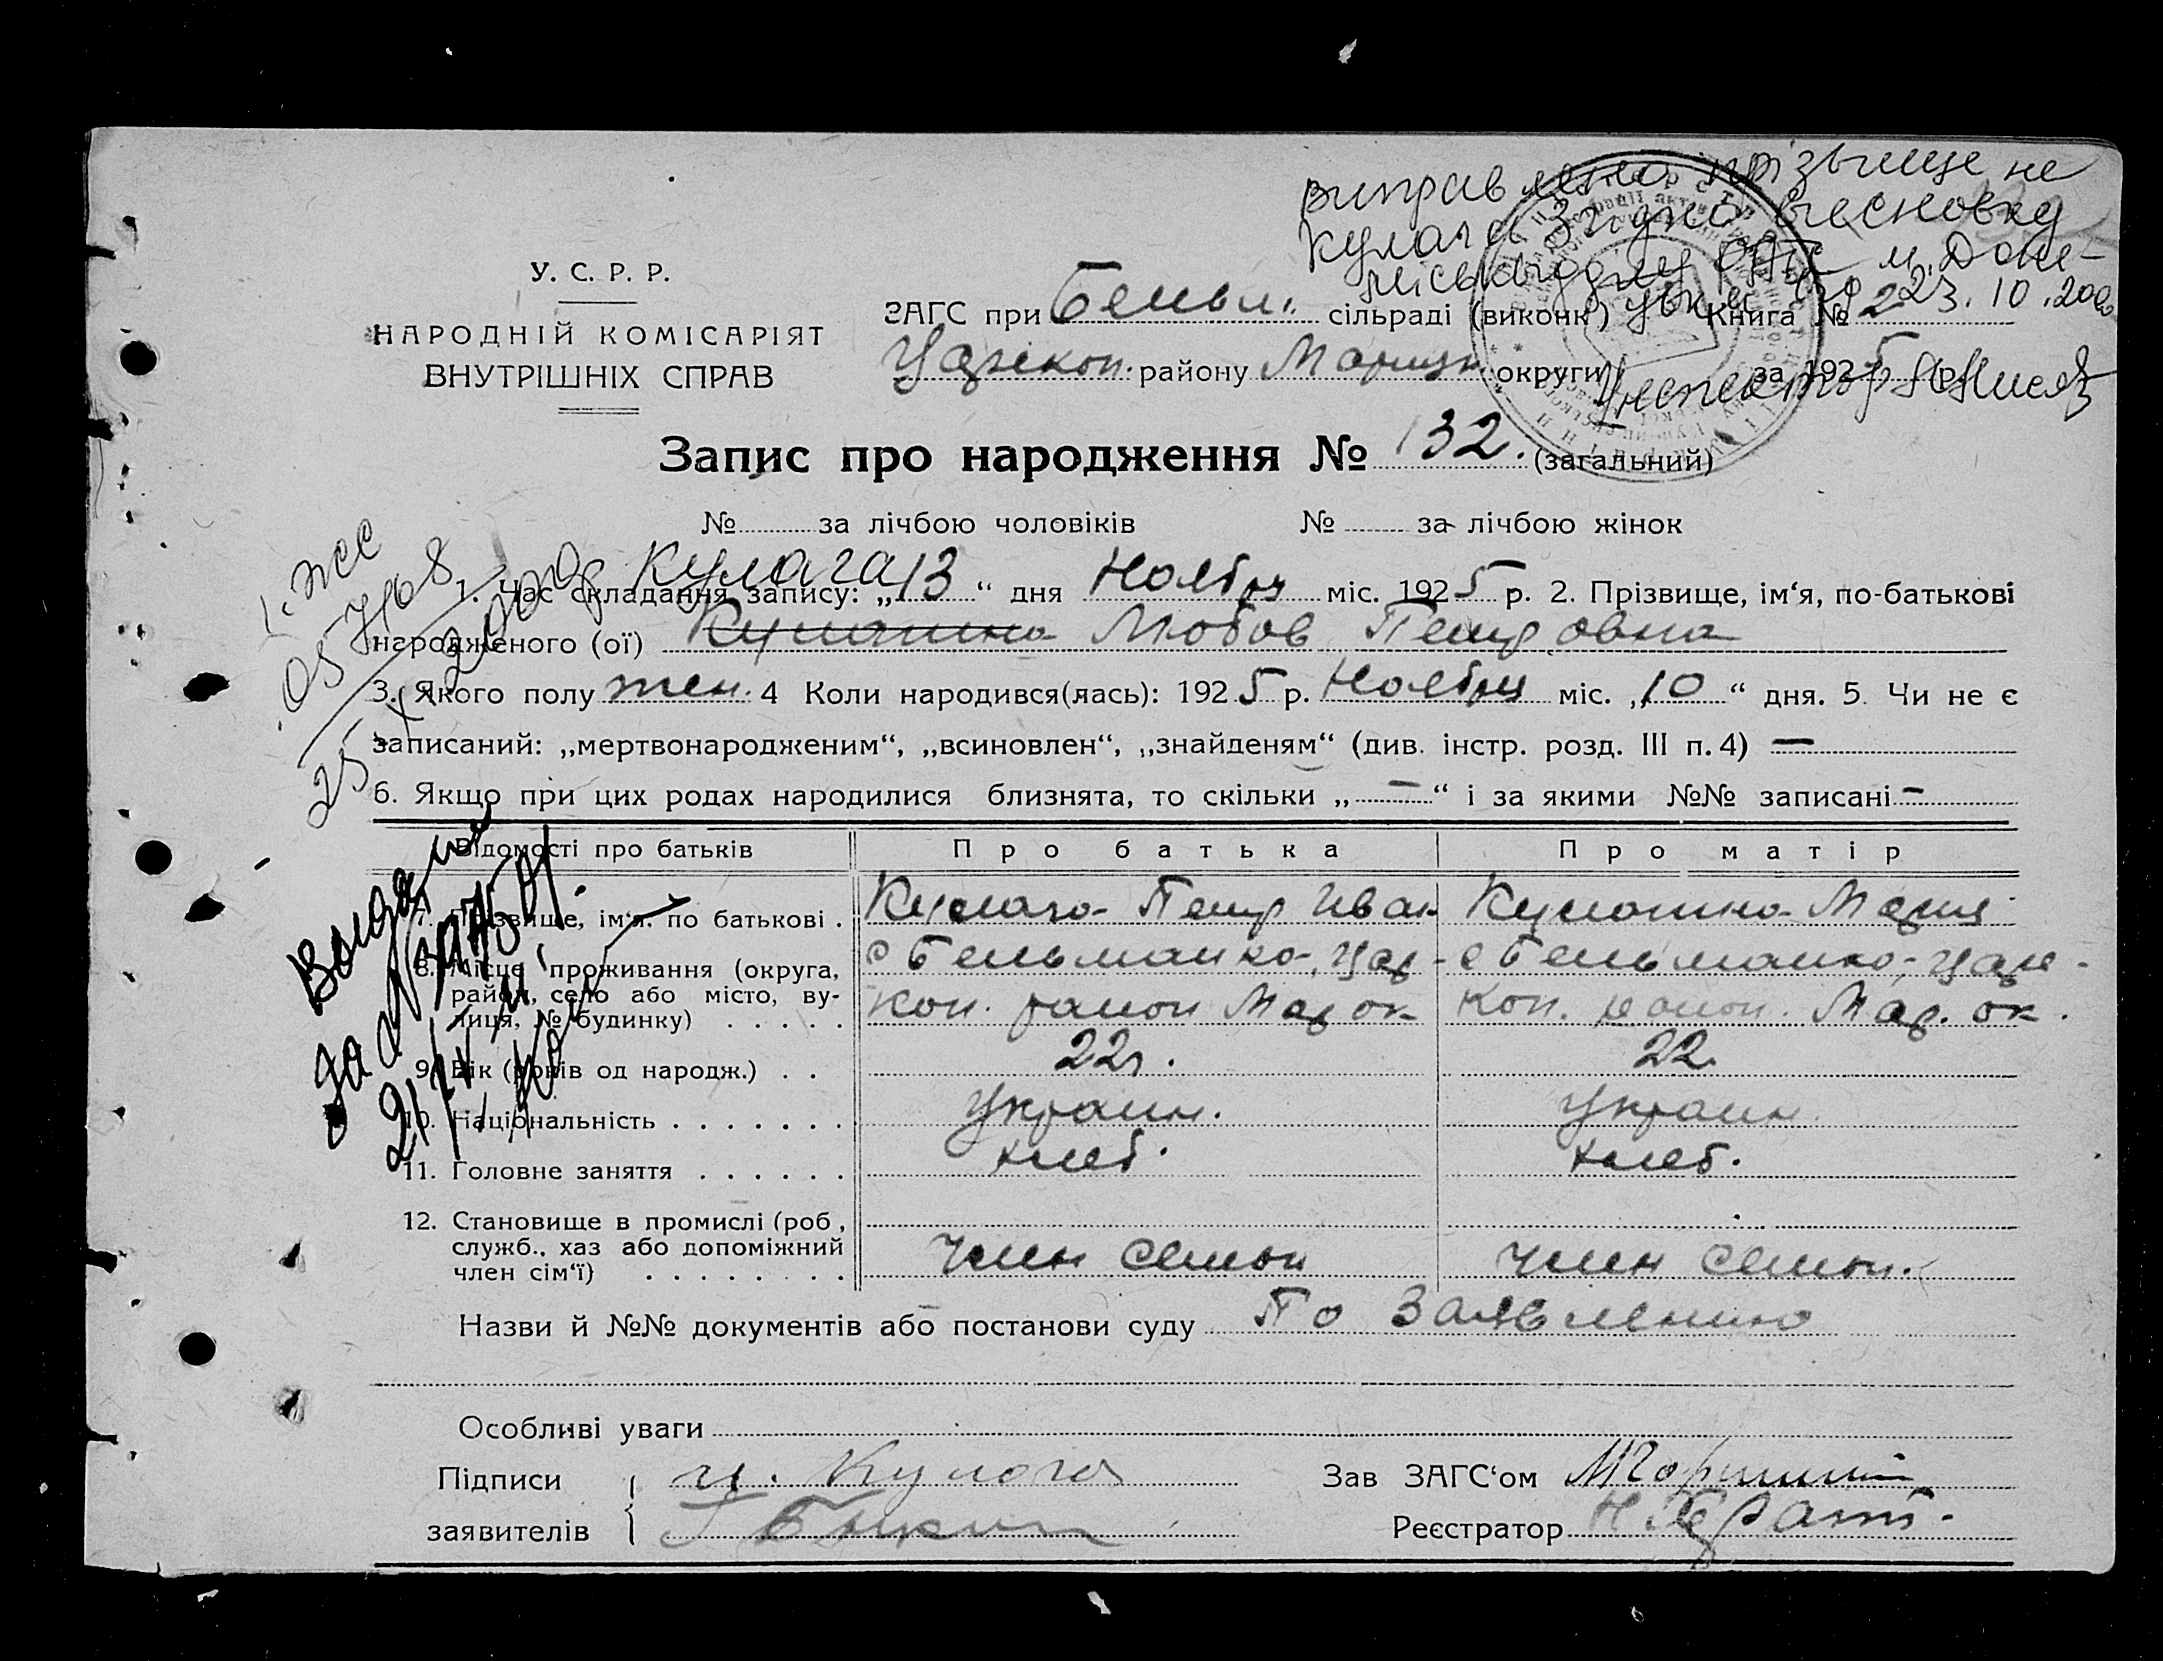 виправлено прізвище на
Кулага Згідно висновку
міськвідділу РАГС м. Доне-
цьк від 23.10.2000
У. С. Р. Р.
НАРОДНІЙ КОМІСАРІЯТ
ВНУТРІШНІХ СПРАВ
ЗАГС при Бельм. сільраді (виконк) Книга № 2
Царекон. району Мариуп. округи за 1925 р.
Інспектор
Запис про народження № 132. (загальний)
№ за лічбою чоловіків № за лічбою жінок
Кулага
1. Час складання запису: „13“ дня Ноября міс. 1925 р. 2. Прізвище, ім‘я, по-батькові
народженого (ої) Кулагина Любов Петровна
3. Якого полу жен. 4 Коли народився(лась): 1925 р. Ноября міс. „10“ дня. 5. Чи не є
записаний: „мертвонародженим“, „всиновлен“, „знайденям“ (див. інстр. розд. III п. 4) —
6. Якщо при цих родах народилися близнята, то скільки „—“ і за якими №№ записані —
Відомості про батьків Про батька Про матір
7. Прізвище, ім‘я, по батькові . Кулага Петр Иван Кулагина Мария
8. Місце проживання (округа, с Бельманка, Цар- с Бельманка, Царе-
район, село або місто, ву-
лиця, № будинку) . . . . . кон. район Мар ок кон. район. Мар. ок.
9. Вік (років од народж.) . . 22г. 22
10. Національність . . . . . . . Украин. Украин.
11. Головне заняття . . . . . . хлеб. хлеб.
12. Становище в промислі (роб,
служб., хаз або допоміжний
член сім‘ї) . . . . . . . . член семьи член семьи.
Назви й №№ документів або постанови суду По Заявлению
Особливі уваги
Підписи Кулага Зав ЗАГС‘ом
заявителів Реєстратор